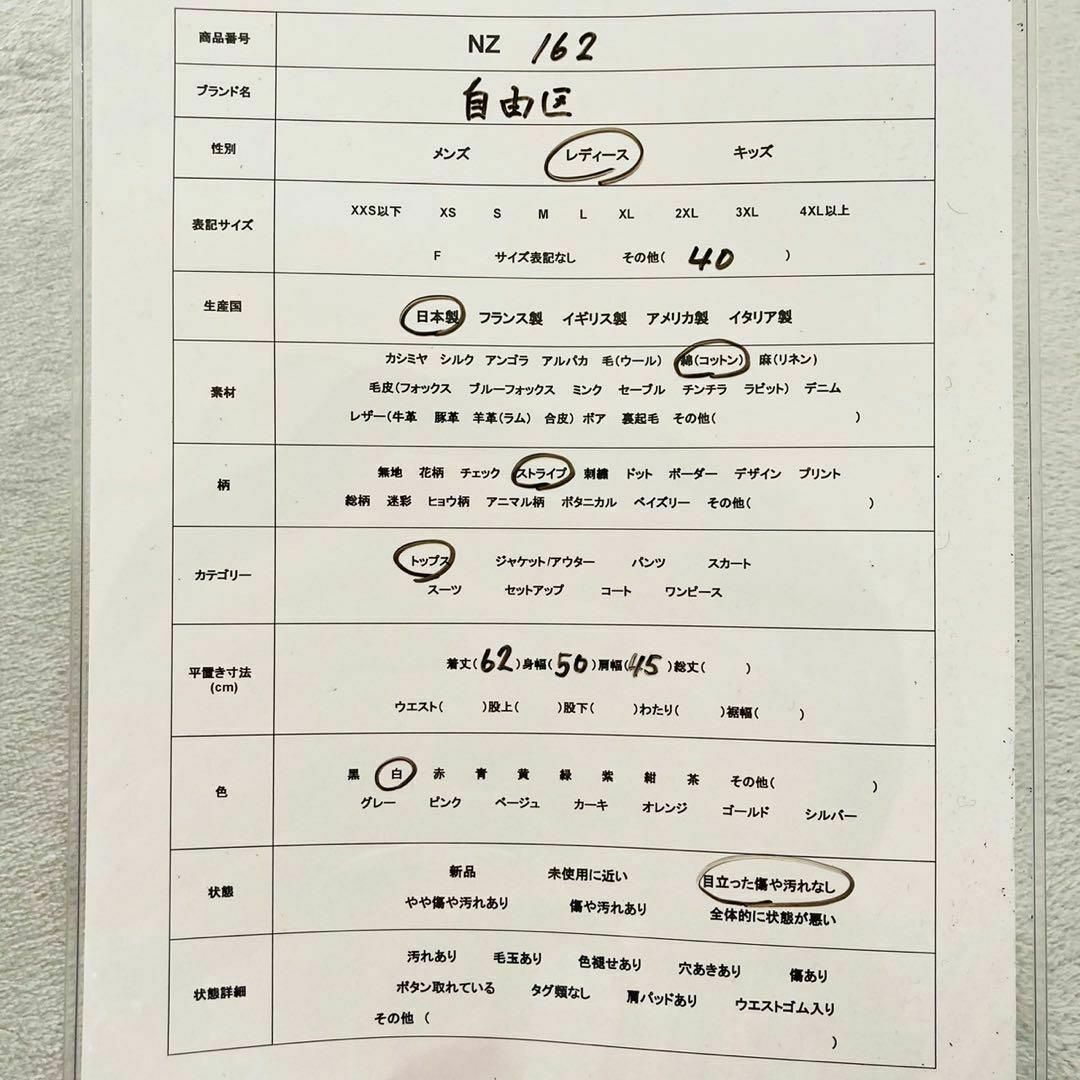 商品番号 NZ 162
ブランド名 自由区
性別 メンズ レディース キッズ
XXS以下 XS S M L XL 2XL 3XL 4XL以上
表記サイズ
F サイズ表記なし その他( 40 )
生産国 日本製 フランス製 イギリス製 アメリカ製 イタリア製
カシミヤ シルク アンゴラ アルパカ 毛(ウール) 綿(コットン) 麻(リネン)
素材 毛皮(フォックス ブルーフォックス ミンク セーブル チンチラ ラビット) デニム
レザー(牛革 豚革 羊革(ラム) 合皮) ボア 裏起毛 その他( )
無地 花柄 チェック ストライプ 刺繍 ドット ボーダー デザイン プリント
柄
総柄 迷彩 ヒョウ柄 アニマル柄 ボタニカル ペイズリー その他( )
トップス ジャケット/アウター パンツ スカート
カテゴリー
スーツ セットアップ コート ワンピース
着丈(62)身幅(50)肩幅(45)総丈( )
平置き寸法
(cm)
ウエスト( )股上( )股下( )わたり( )裾幅( )
黒 白 赤 青 黄 緑 紫 紺 茶 その他( )
色
グレー ピンク ベージュ カーキ オレンジ ゴールド シルバー
新品 未使用に近い 目立った傷や汚れなし
状態
やや傷や汚れあり 傷や汚れあり 全体的に状態が悪い
汚れあり 毛玉あり 色褪せあり 穴あきあり 傷あり
状態詳細 ボタン取れている タグ類なし 肩パッドあり ウエストゴム入り
その他 ( )